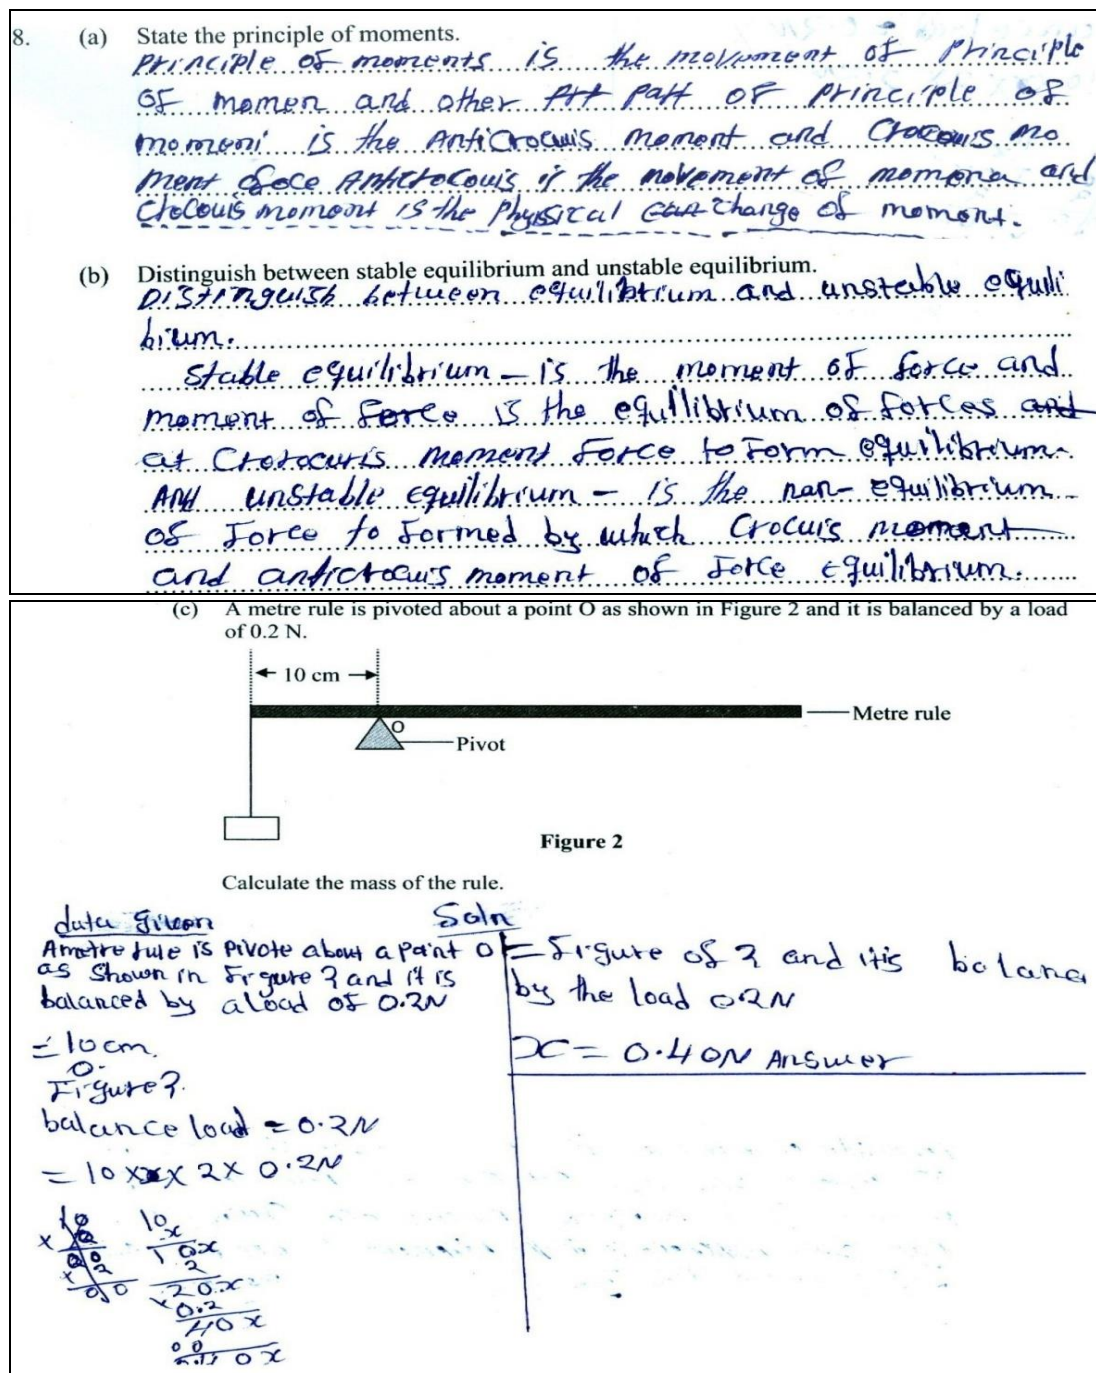 8. (a) State the principle of moments.
Principle of moments is the movement of principle
of momen and other part of principle of
momoni is the Anticrocuis moment and
ment is the movement of and
moment is the physical change of moment.
(b) Distinguish between stable equilibrium and unstable equilibrium.
Distinguish between equilibrium and unstable equili
brium.
Stable equilibrium – is the moment of force and
moment of Force is the equilibrium of forces and
at moment Force to Form equilibrium.
And unstable equilibrium – is the non-equilibrium
of Force to formed by which Crocuis moment
and anticrocuis moment of force Equilibrium.
(c) A metre rule is pivoted about a point O as shown in Figure 2 and it is balanced by a load
of 0.2 N.
10 cm
Metre rule
O
Pivot
Figure 2
Calculate the mass of the rule.
data given
Soln
A metre rule is Pivote about a point O
as shown in Figure 2 and it is
balanced by a load of 0.2N
= 10cm.
O.
Figure 2.
balance load = 0.2N
= 10 x 2 x 0.2N
10
x
10x
2
20x
0.2
40x
= Figure of 2 and it is balance
by the load 0.2N
x = 0.40N Answer